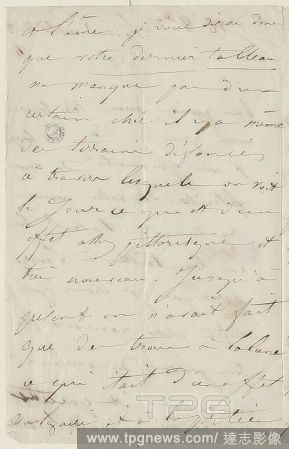 et l'âme. je vous dirai donc
que votre dernier tableau
ne manque pas d'un
certain chic. il y a même
des terrains défoncés
à travers lesquels on voit
le jour ce qui est d'un
effet assez pittoresque et
très nouveau. Jusqu'à
présent on n'avait fait
que des trous à la lune
ce qui était d'un effet
vulgaire et à la portée
TPG
www.tpgnews.com / 達志影像